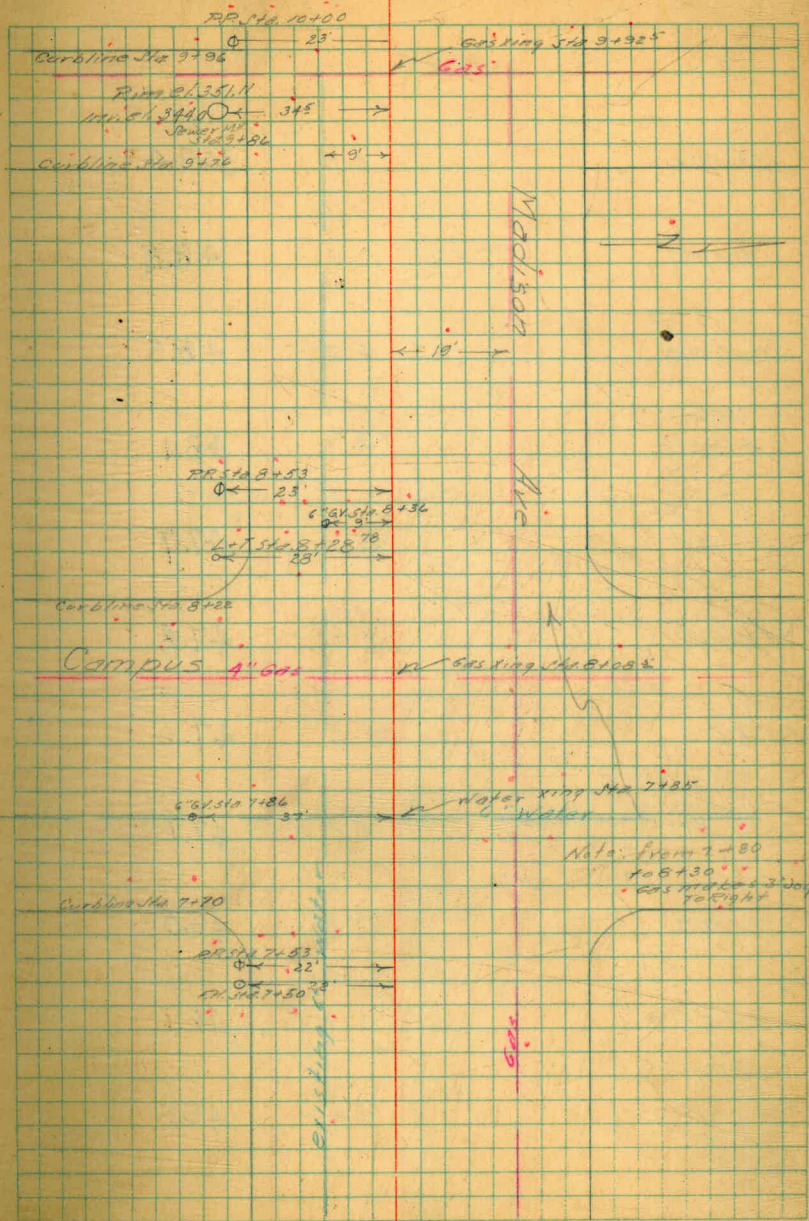 P.P. Sta. 10+00
23'
Gas xing Sta 9+92⁵
Curbline Sta 9+96
Gas
Rim el. 351.11
Inv. el. 344.0
34⁵
Sewer MH
Sta 9+86
9'
Curbline Sta 9+76
Madison
N
19'
P.P. Sta 8+53
23'
Ave
6" G.V. Sta. 8+36
9'
L+T Sta. 8+28
28'
Curbline Sta. 8+22
Campus 4" Gas
Gas xing Sta. 8+08
6" G.V. Sta 7+86
37'
Water xing Sta 7+85
6" Water
Note: from 7+80
to 8+30
Gas makes 3' Jog
To Right
Curbline Sta 7+70
P.P. Sta 7+53
22'
F.H. Sta. 7+50
Gas
existing 6" water